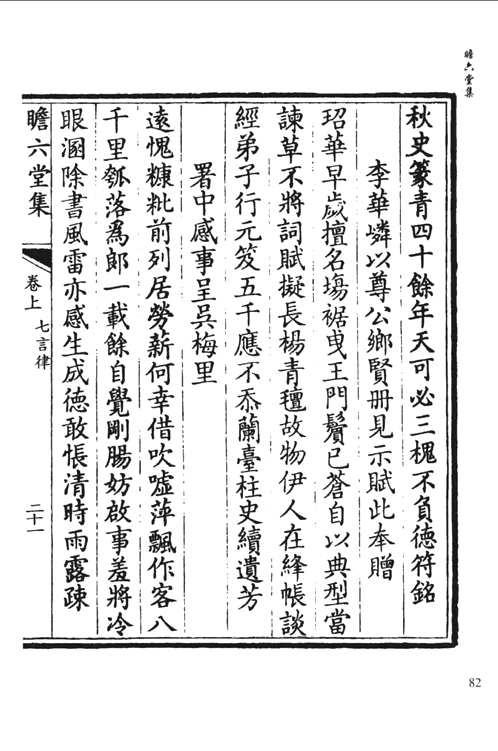 瞻六堂集
秋史篆青四十餘年天可必三槐不負德符銘
李華嶙以尊公鄉賢冊見示賦此奉贈
玿華早歲擅名場裾曳王門鬢已蒼自以典型當
諫草不將詞賦擬長楊青氊故物伊人在絳帳談
經弟子行元笈五千應不忝蘭臺柱史續遺芳
署中感事呈吳梅里
遠愧糠粃前列居勞薪何幸借吹噓萍飄作客八
千里瓠落為郎一載餘自覺剛腸妨啟事羞將冷
眼溷除書風雷亦感生成德敢悵清時雨露疎
瞻六堂集
卷上 七言律
二十一
82